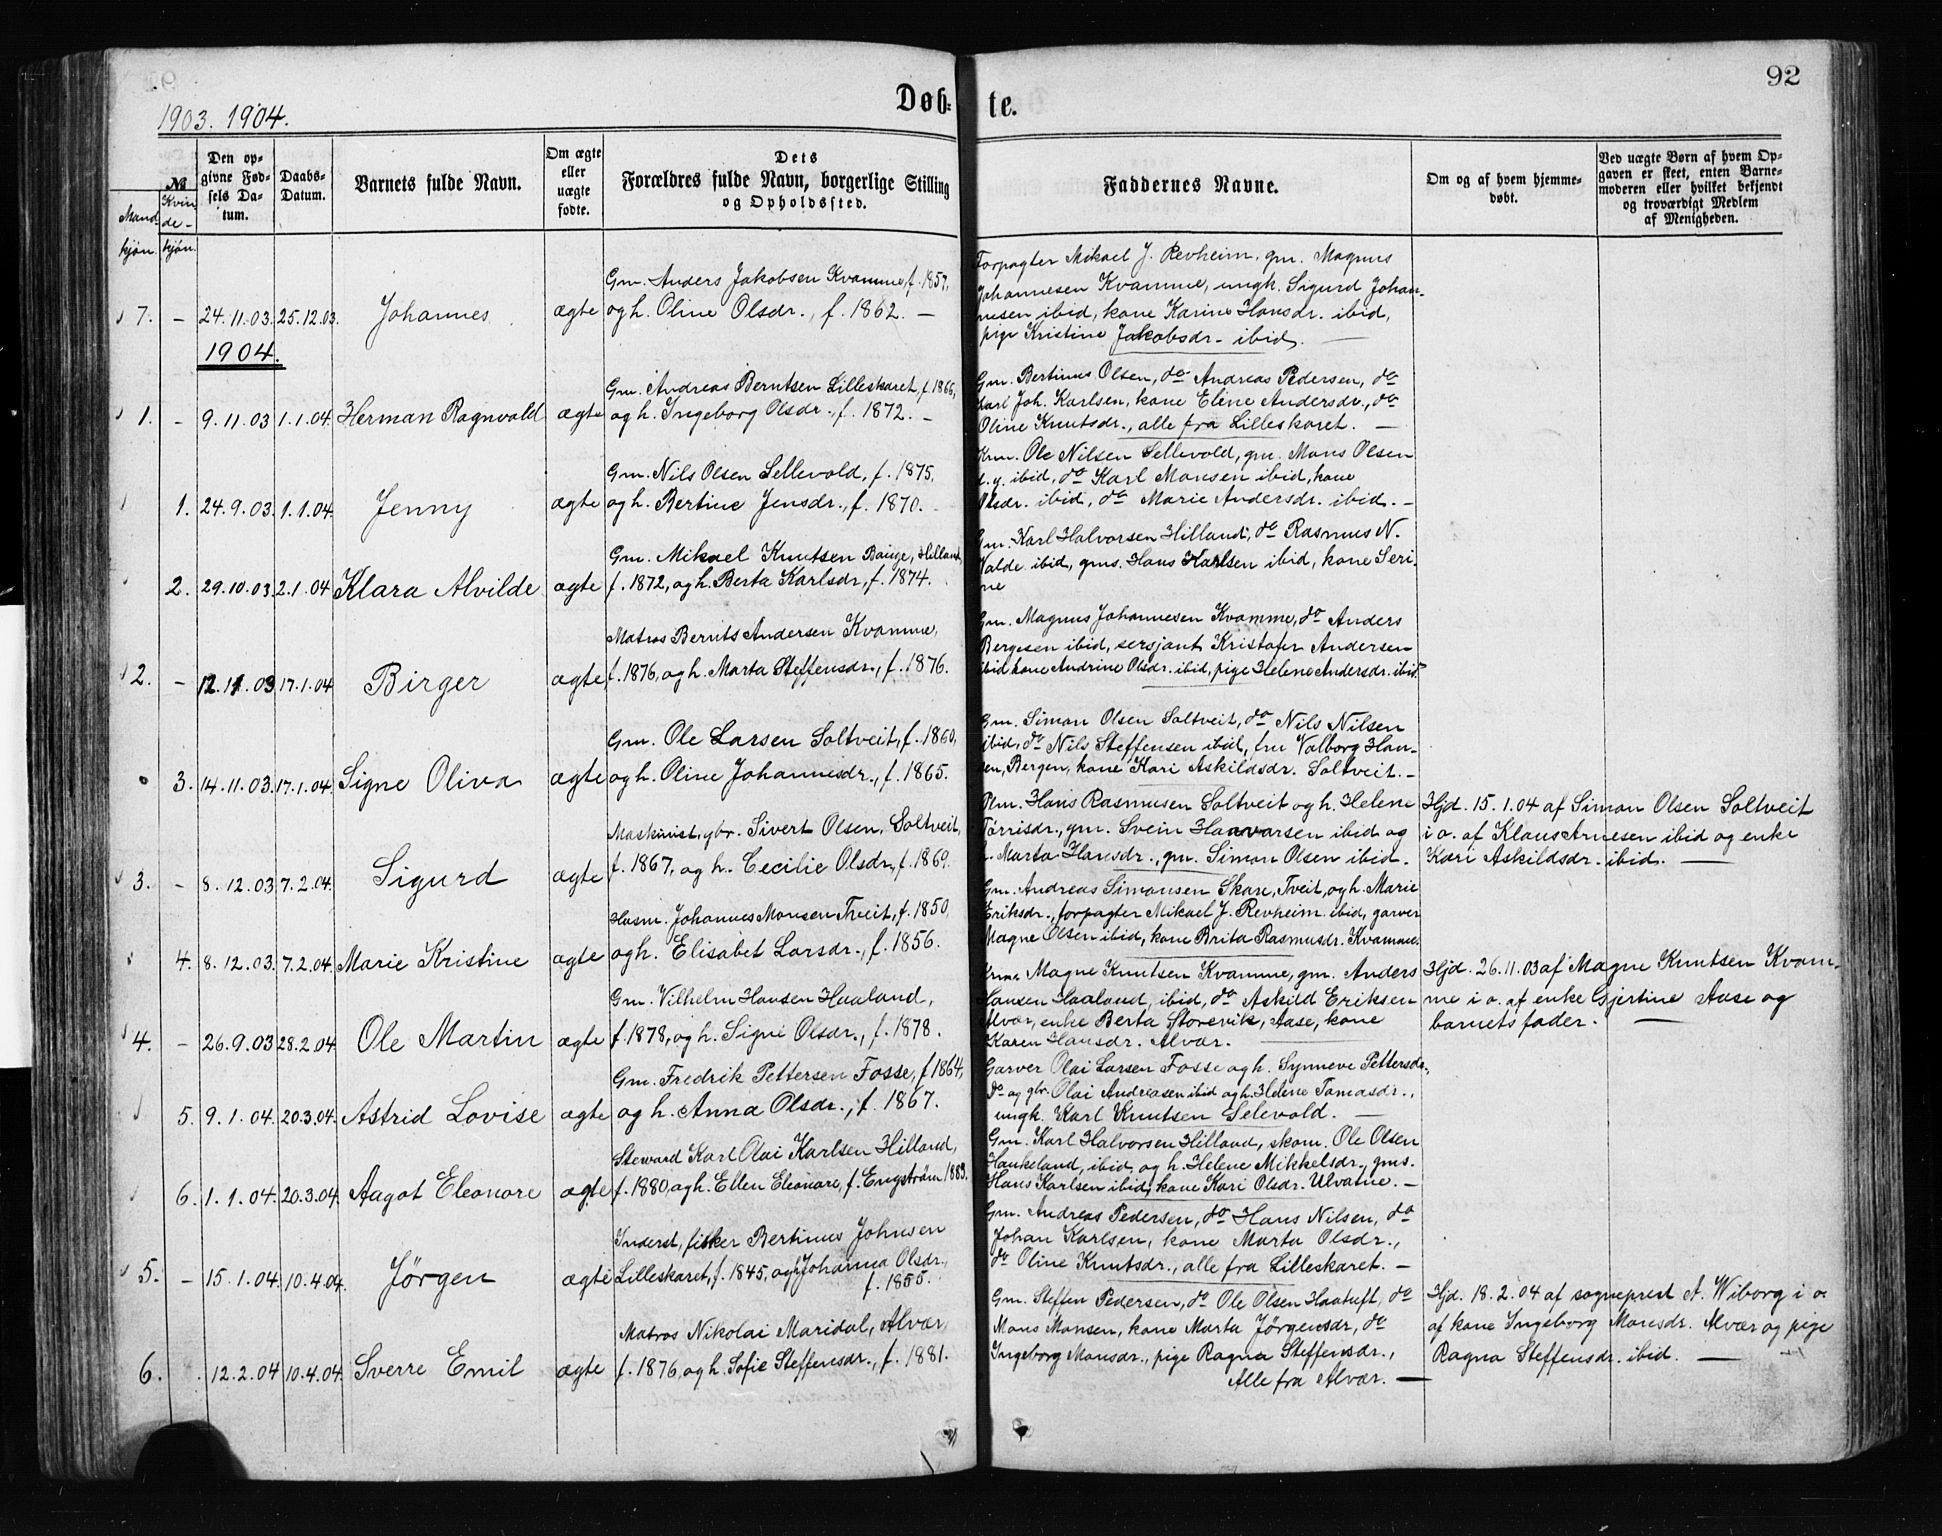 92
1903. 1904.
Døb-te.
№
Mand-kjøn.
Kvinde-kjøn.
Den opgivne Fødsels Datum.
Daabs-Datum.
Barnets fulde Navn.
Om ægte eller uægte fødte.
Dets Forældres fulde Navn, borgerlige Stilling og Opholdssted.
Faddernes Navne.
Om og af hvem hjemmedøbt.
Ved uægte Børn af hvem Opgaven er skeet, enten Barnemoderen eller hvilket bekjendt og troværdigt Medlem af Menigheden.
7. – 24.11.03. 25.12.03. Johannes ægte
Gm. Anders Jakobsen Kvamme, f. 1857,
og h. Oline Olsdr., f. 1862. –
Forpagter Mikael J. Revheim, gm. Magnus
Johannesen Kvamme, ungk. Sigurd Johan-
nesen ibid, kone Karine Hansdr. ibid,
pige Kristine Jakobsdr. ibid. –
1904.
1. – 9.11.03 1.1.04. Herman Ragnvald ægte
Gm. Andreas Berntsen Lilleskaret, f. 1866,
og h. Ingeborg Olsdr., f. 1872. –
Gm. Bertinus Olsen, do Andreas Pedersen, do
Karl Joh. Karlsen, kone Eline Andersdr., do
Oline Knutsdr., alle fra Lilleskaret. –
1. 24.9.03. 1.1.04. Jenny ægte
Gm. Nils Olsen Sellevold, f. 1875,
og h. Bertine Jensdr., f. 1870.
Ole Nilsen Sellevold, gm. Mons Olsen
d.y. ibid, do Karl Monsen ibid, kone
Olsdr. ibid, do Marie Andersdr. ibid. –
2. 29.10.03. 2.1.04 Klara Alvilde ægte
Gm. Mikael Knutsen Bauge, Hilland,
f. 1872, og h. Berta Karlsdr, f. 1874.
Gm. Karl Halvorsen Hilland, do Rasmus N.
Valde ibid, gms. Hans Karlsen ibid, kone Seri-
ne
2. – 12.11.03 17.1.04 Birger ægte
Matros Bernts Andersen Kvamme,
f. 1876, og h. Marta Steffensdr., f. 1876.
Gm. Magnus Johannesen Kvamme, do Anders
Bergesen ibid, sersjant Kristofer Andersen
ibid kone Andrine Olsdr. ibid, pige Helene Andersdr. ibid
3. 14.11.03. 17.1.04. Signe Oliva ægte
Gm. Ole Larsen Soltveit, f. 1860,
og h. Oline Johannesdr., f. 1865.
Gm. Simon Olsen Soltveit, do Nils Nilsen
ibid, do Nils Steffensen ibid, fru Valborg Han-
sen, Bergen, kone Kari Askildsdr. Soltveit. –
3. – 8.12.03 7.2.04. Sigurd ægte
Maskinist, gbr. Sivert Olsen, Soltveit,
f. 1867, og h. Cecilie Olsdr, f. 1869.
Hans Rasmusen Soltveit og h. Helene
Tørrisdr., gm. Svein Haavarsen ibid og
h. Marta Hansdr., gm. Simon Olsen ibid.
Hjd. 15.1.04 af Simon Olsen Soltveit
i o. af Klaus Arnesen ibid og enke
Kari Askildsdr. ibid. –
4. 8.12.03. 7.2.04. Marie Kristine ægte
Husm. Johannes Monsen Tveit, f. 1850,
og h. Elisabet Larsdr., f. 1856.
Gm. Andreas Simonsen Skare, Tveit, og h. Marie
Eriksdr., forpagter Mikael J. Revheim ibid, garver
Magne Olsen ibid, kone Brita Rasmusdr. Kvamme.
4. – 26.9.03 28.2.04. Ole Martin ægte
Gm. Vilhelm Hansen Haaland,
f. 1878, og h. Signe Olsdr., f. 1878.
Magne Knutsen Kvamme, gm. Anders
Hansen Haaland, ibid, do Askild Eriksen
Alvær, enke Berta Storevik, Aase, kone
Karen Hansdr. Alvær.
Hjd. 26.11.03 af Magne Knutsen Kvam-
me i o. af enke Gjertine Aase og
barnets fader. –
5. 9.1.04. 20.3.04. Astrid Lovise ægte
Gm. Fredrik Pettersen Fosse, f. 1864,
og h. Anna Olsdr., f. 1867.
Garver Olai Larsen Fosse og h. Synneve Pettersdr.,
do og gbr. Olai Andreasen ibid og h. Helene Tomasdr.,
ungk. Karl Knutsen Selevold. –
6. 1.1.04. 20.3.04. Aagot Eleonore ægte
Steward Karl Olai Karlsen Hilland,
f. 1880, og h. Ellen Eleonore, f. Engström 1883.
Gm. Karl Halvorsen Hilland, skom. Ole Olsen
Haukeland, ibid, og h. Helene Mikkelsdr., gms.
Hans Karlsen ibid, kone Kari Olsdr. Ulvatne. –
5. – 15.1.04. 10.4.04. Jørgen ægte
Inderst, fisker Bertinus Johnsen
Lilleskaret, f. 1845, og h. Johanna Olsdr.,
f. 1855.
Gm. Andreas Pedersen, do Hans Nilsen, do
Johan Karlsen, kone Marta Olsdr.,
do Oline Knutsdr., alle fra Lilleskaret. –
6. 12.2.04 10.4.04. Sverre Emil ægte
Matros Nikolai Maridal, Alvær,
f. 1876, og h. Sofie Steffensdr., f. 1881.
Gm. Steffen Pedersen, do Ole Olsen Haatuft, do
Mons Monsen, kone Marta Jørgensdr, do
Ingeborg Monsdr., pige Ragna Steffensdr.,
Alle fra Alvær. –
Hjd. 18.2.04 af sogneprest A. Wiborg i o.
af kone Ingeborg Monsdr. Alvær og pige
Ragna Steffensdr. ibid. –